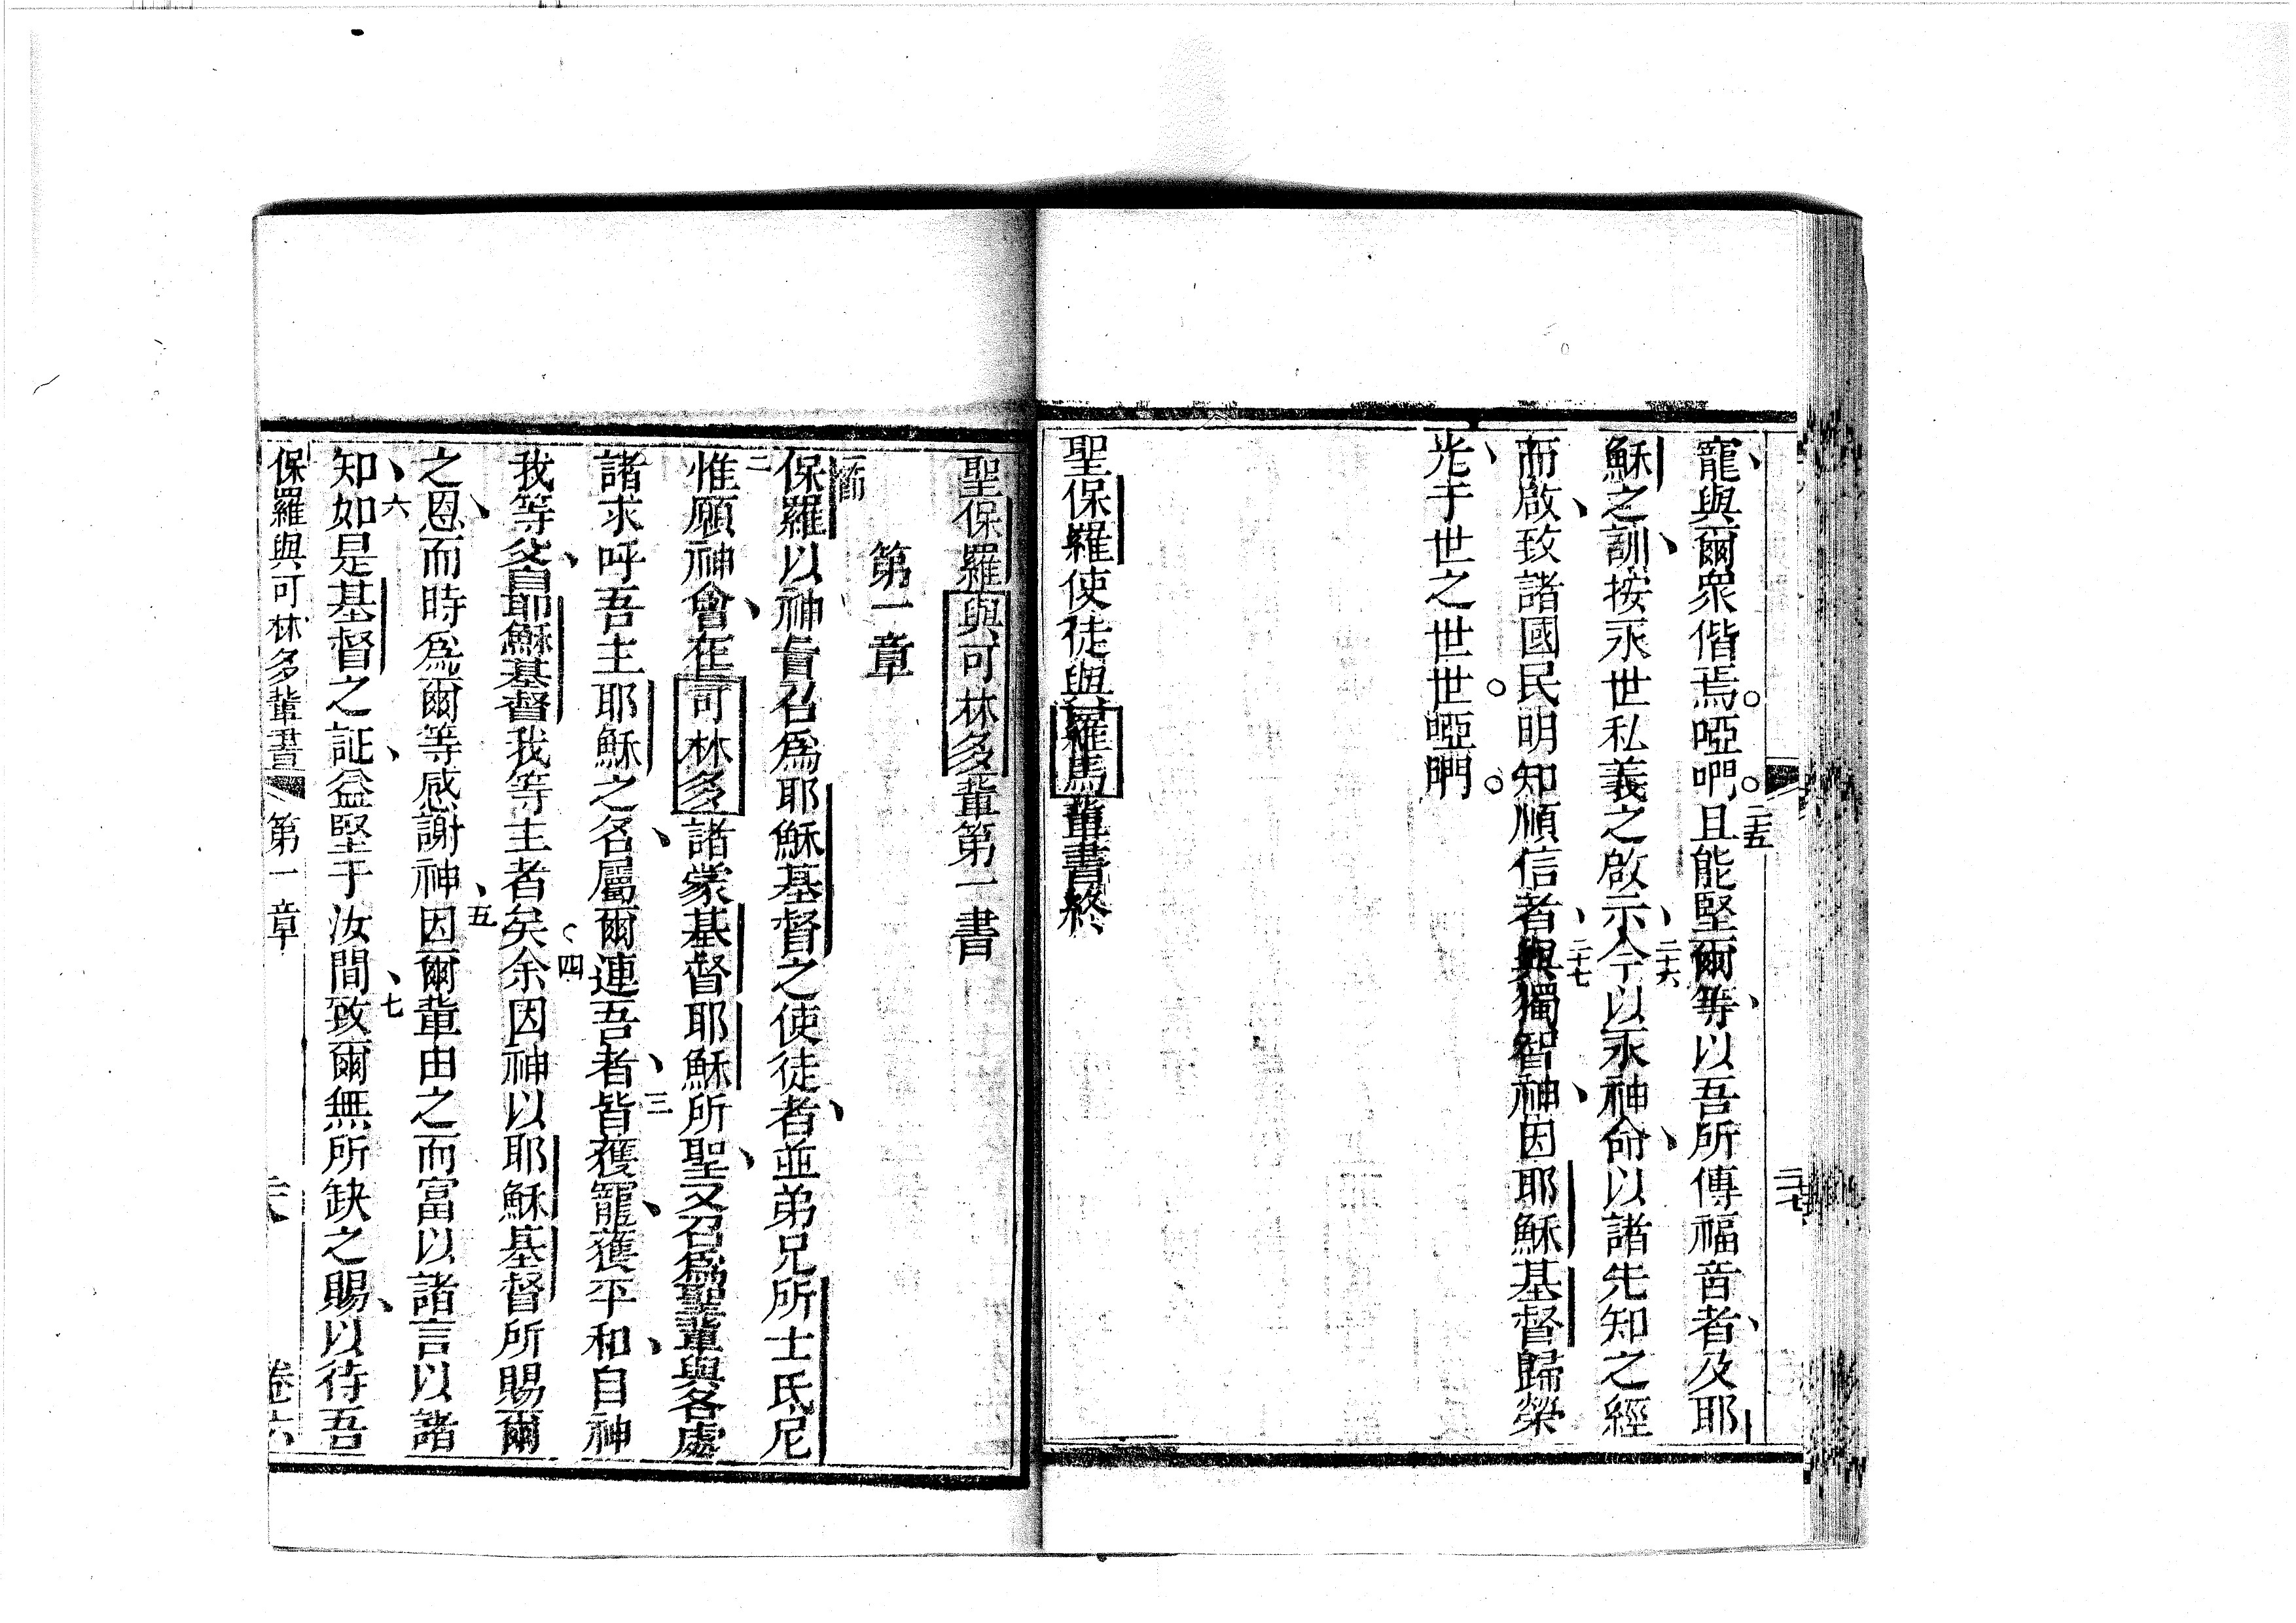 寵與爾衆偕焉。啞啊。二十五且能堅爾等、以吾所傳福音者、及耶
穌之訓、按永世私義之啟示、二十六今以永神命、以諸先知之經
而啟、致諸國民明知順信者、二十七與獨智神、因耶穌基督歸榮
光、于世之世世。啞啊。
聖保羅使徒與羅馬輩書終
三十七
聖保羅與可林多輩第一書
第一章
一節保羅以神旨召爲耶穌基督之使徒者、並弟兄所士氏尼
二惟願神會、在可林多諸蒙基督耶穌所聖、又召爲聖輩與各處
諸求呼吾主耶穌之名、屬爾連吾者、三皆獲寵、獲平和、自神
我等父、自耶穌基督我等主者矣。四余因神以耶穌基督所賜爾
之恩、而時爲爾等感謝神、五因爾輩由之而富以諸言以諸
知、六如是基督之証、益堅于汝間、七致爾無所缺之賜、以待吾
保羅與可林多輩書 第一章 卷六